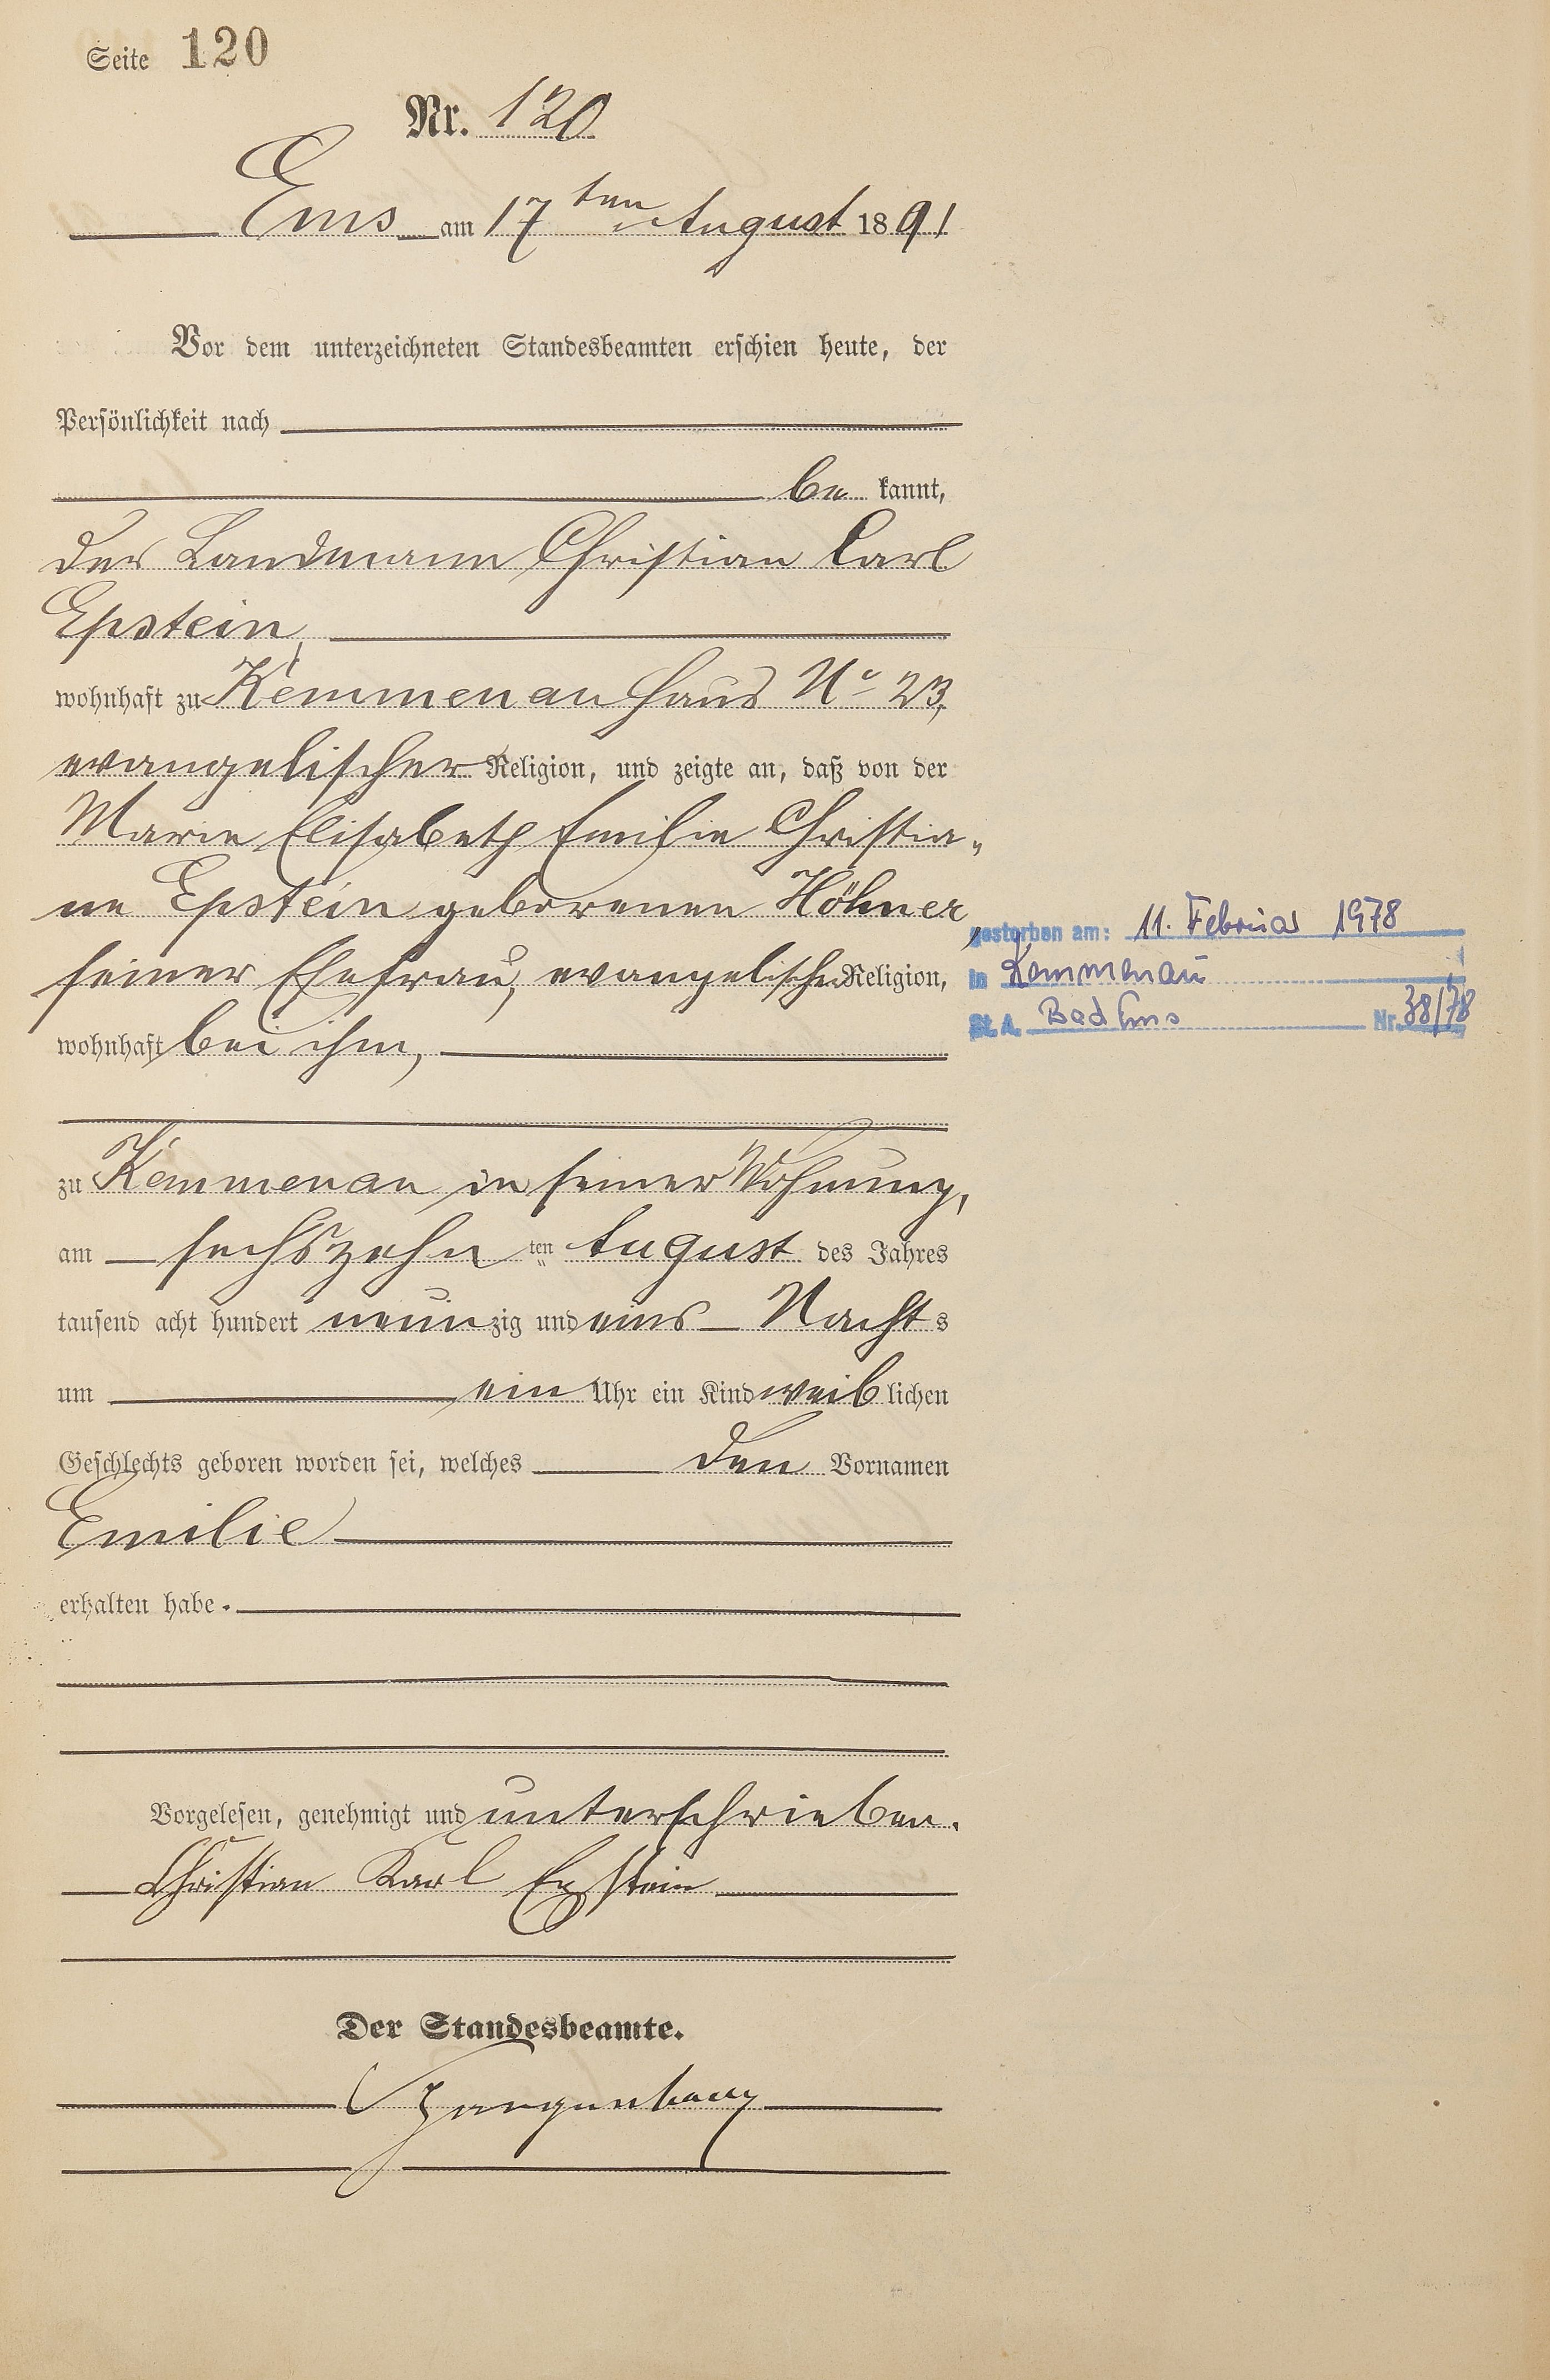 Seite 120
Nr. 120
Ems am 17ten August 1891
Vor dem unterzeichneten Standesbeamten erschien heute, der
Persönlichkeit nach
be kannt,
der Landmann Christian Carl
Epstein,
wohnhaft zu Kemmenau Haus No 23,
evangelischer Religion, und zeigte an, daß von der
Marie Elisabeth Emilie Christia„
ne Epstein geborenen Höhner,
seiner Ehefrau, evangelischer Religion,
wohnhaft bei ihm,
zu Kemmenau in seiner Wohnung,
am sechszehn ten August des Jahres
tausend acht hundert neunzig und eins Nachts
um ein Uhr ein Kind weiblichen
Geschlechts geboren worden sei, welches den Vornamen
Emilie
erhalten habe.
Vorgelesen, genehmigt und unterschrieben.
Christian Karl Epstein
Der Standesbeamte.
gestorben am: 11. Februar 1978
in Kemmenau
St. A. Bad Ems Nr. 38/78